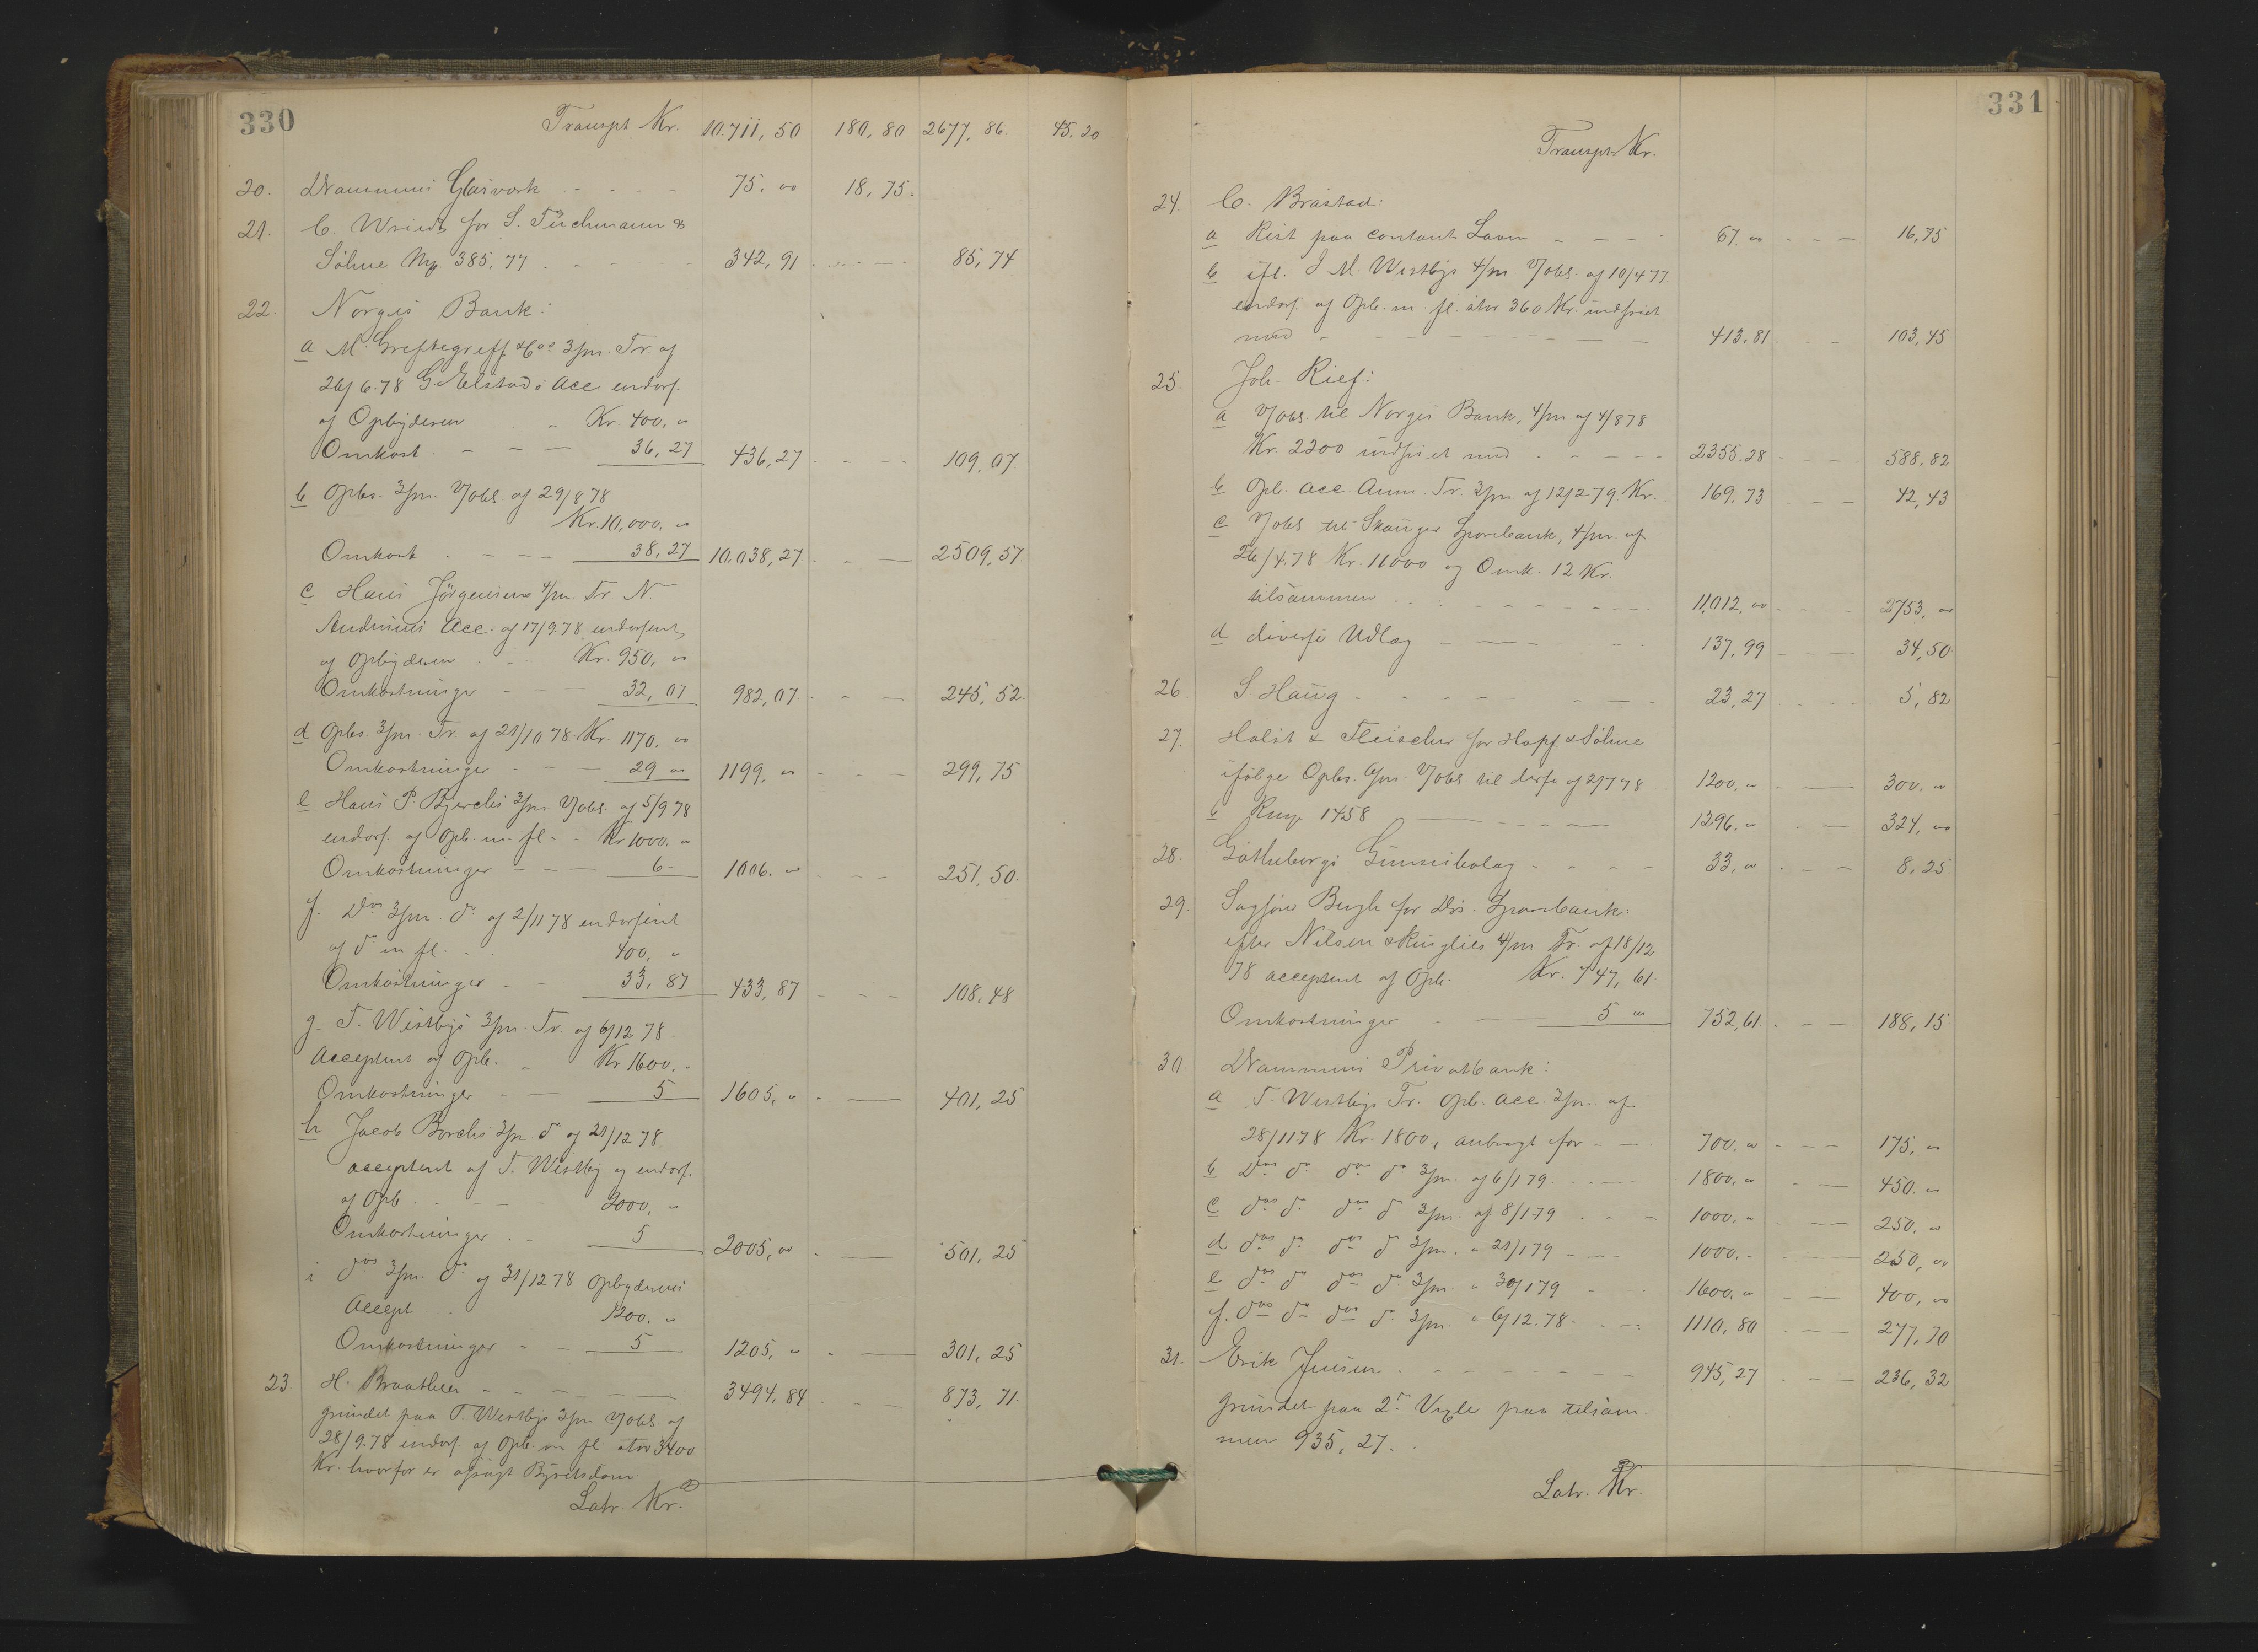 330
Transpt Kr. 10.711,50 180,80 2677,86. 45.20
20. Drammens Glasværk - - - - 75. " 18,75.
21. C. Wriedt for S. Tüchmann &
Söhne Mk. 385,77 - - - 342,91 - - - 85,74
22. Norges Bank:
a M. Greftegreff & Co 3/m. Tr. af
26/6.78 G. Elstads Acc endors.
af Opbyderen - Kr. 400, "
Omkost. - - - 36,27 436,27 - - - 109.07.
b Opbs. 3/m. Vobl. af 29/8 78
Kr. 10,000, "
Omkost - - - 38,27 10.038,27. - - 2509,57.
c Hans Jörgensens 4/m. Tr. N.
Andersens Acc. af 17/9.78 endorseret
af Opbyderen - - Kr. 950, "
Omkostninger - - - 32,07 982,07 - - - 245,52.
d Opbs. 3/m. Tr. af 21/10 78 Kr. 1170, "
Omkostninger - - - 29 " 1199, " - - - 299,75
e Hans P. Bjerches 3/m Vobl. af 5/9 78
endors. af Opb. m. fl. - - Kr 1000, "
Omkostninger - - - 6 - 1006. " - - - 251,50.
f. Ds 3/m. do af 2/11 78 endorseret
af do m fl. - - 400, "
Omkostninger - - 33,87 433,87 - - - 108,48
g. T. Westbys 3/m. Tr. af 6/12 78
Accepteret af Opb. - Kr 1600. -
Omkostninger - - 5 1605, " - - 401,25
h Jacob Borchs 3/m do af 21/12 78
accepteret af T. Westby og endors.
af Opb - - - 2000, "
Omkostninger - - 5 2005, " - - 501,25
i ds 3/m. do af 31/12 78 Opbyderens
Accept - - 1200, "
Omkostninger - - 5 1205, " - - 301,25
23 H. Braathen - - - - - 3494,84 - - - 873,71.
grundet paa T. Westbys 3/m Vobl. af
28/9.78 endors. af Opb. m fl stor 3400
Kr. hvorfor er afsagt Byretsdom
Latr. Kr.
331
Transpt Kr.
24. C. Brastad:
a Rest paa contant Laan - - - - 67. " - - - 16,75
b ifl. J M. Westbys 4/m. Vobl. af 10/4 77
endors. af Opb. m. fl. stor 360 Kr. indfriet
med - - - - - - - 413,81. - - - 103,45
25. Joh. Rief:
a Vobl. til Norges Bank, 4/m af 4/8 78
Kr. 2200 indfriet med - - - - 2355.28 - - - 588,82
b Opb. Acc. Anm. Tr. 3/m af 12/2 79 Kr. 169.73 - - - 42,43
c Vobl til Skauger Sparebank, 4/m af
26/4.78 Kr. 11000 og Omk. 12 Kr.
tilsammen - - - - - - 11,012, " - - - 2753, "
d diverse Udlæg - - - - 137,99 - - - 34,50
26. S Haug - - - - - - - 23,27 - - - 5,82
27. Holst & Fleischer for Hopf & Söhne
ifölge Opbs. 6/m. Vobl til disse af 2/7 78 1200, " - - 300. "
b Regn. 1458 - - - - - 1296. " - - 324, "
28. Götheborgs Gummibolag - - - - 33, " - - - 8,25.
29. Sagförer Bugh for Drs. Sparebank:
efter Nilsen & Ringlies 4/m Tr. af 18/12
78 accepteret af Opb. Kr. 747,61.
Omkostninger - - - 5 " 752,61. - - - 188,15
30. Drammens Privatbank:
a T. Westbys Tr. Opb. Acc. 3/m. af
28/11 78 Kr. 1800, anbragt for - - 700. " - - - 175, "
b Ds do ds do 3/m. af 6/1 79. - - - 1800, " - - 450. "
c ds do ds do 3/m. af 8/1.79 - - - 1000. " - - - 250. "
d ds do ds do 3/m. " 21/1 79 - - - 1000. - - - 250, "
e ds do ds do 3/m. " 30/1 79 - - 1600. " - - 400, "
f. ds do ds do 3/m. " 6/12.78. - - 1110,80 - - - 277,70
31. Erik Jensen - - - - - - - 945,27 - - - 236,32
grundet paa 2de Vexler paa tilsam.
men 935,27.
Latr. Kr.